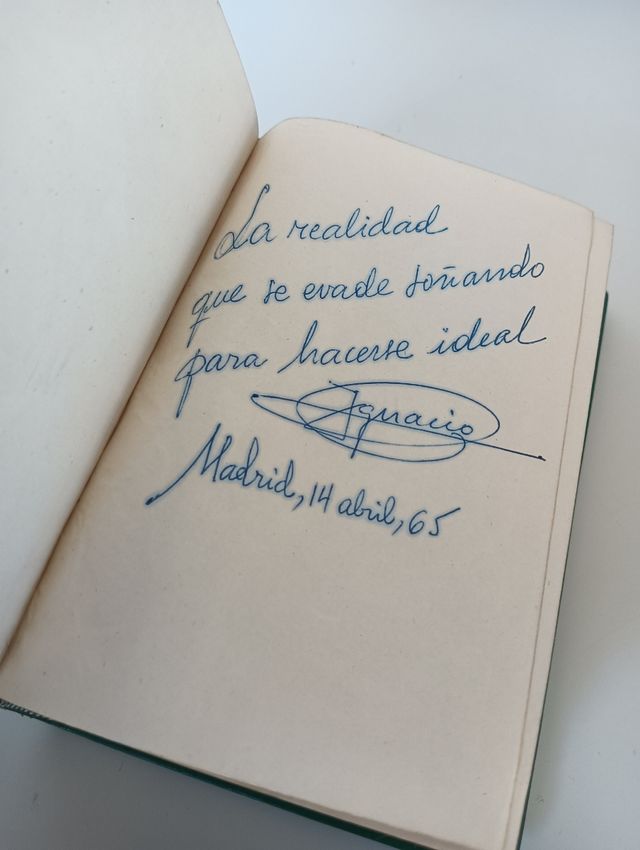 La realidad
que se evade soñando
para hacerse ideal
Ignacio
Madrid, 14 abril, 65